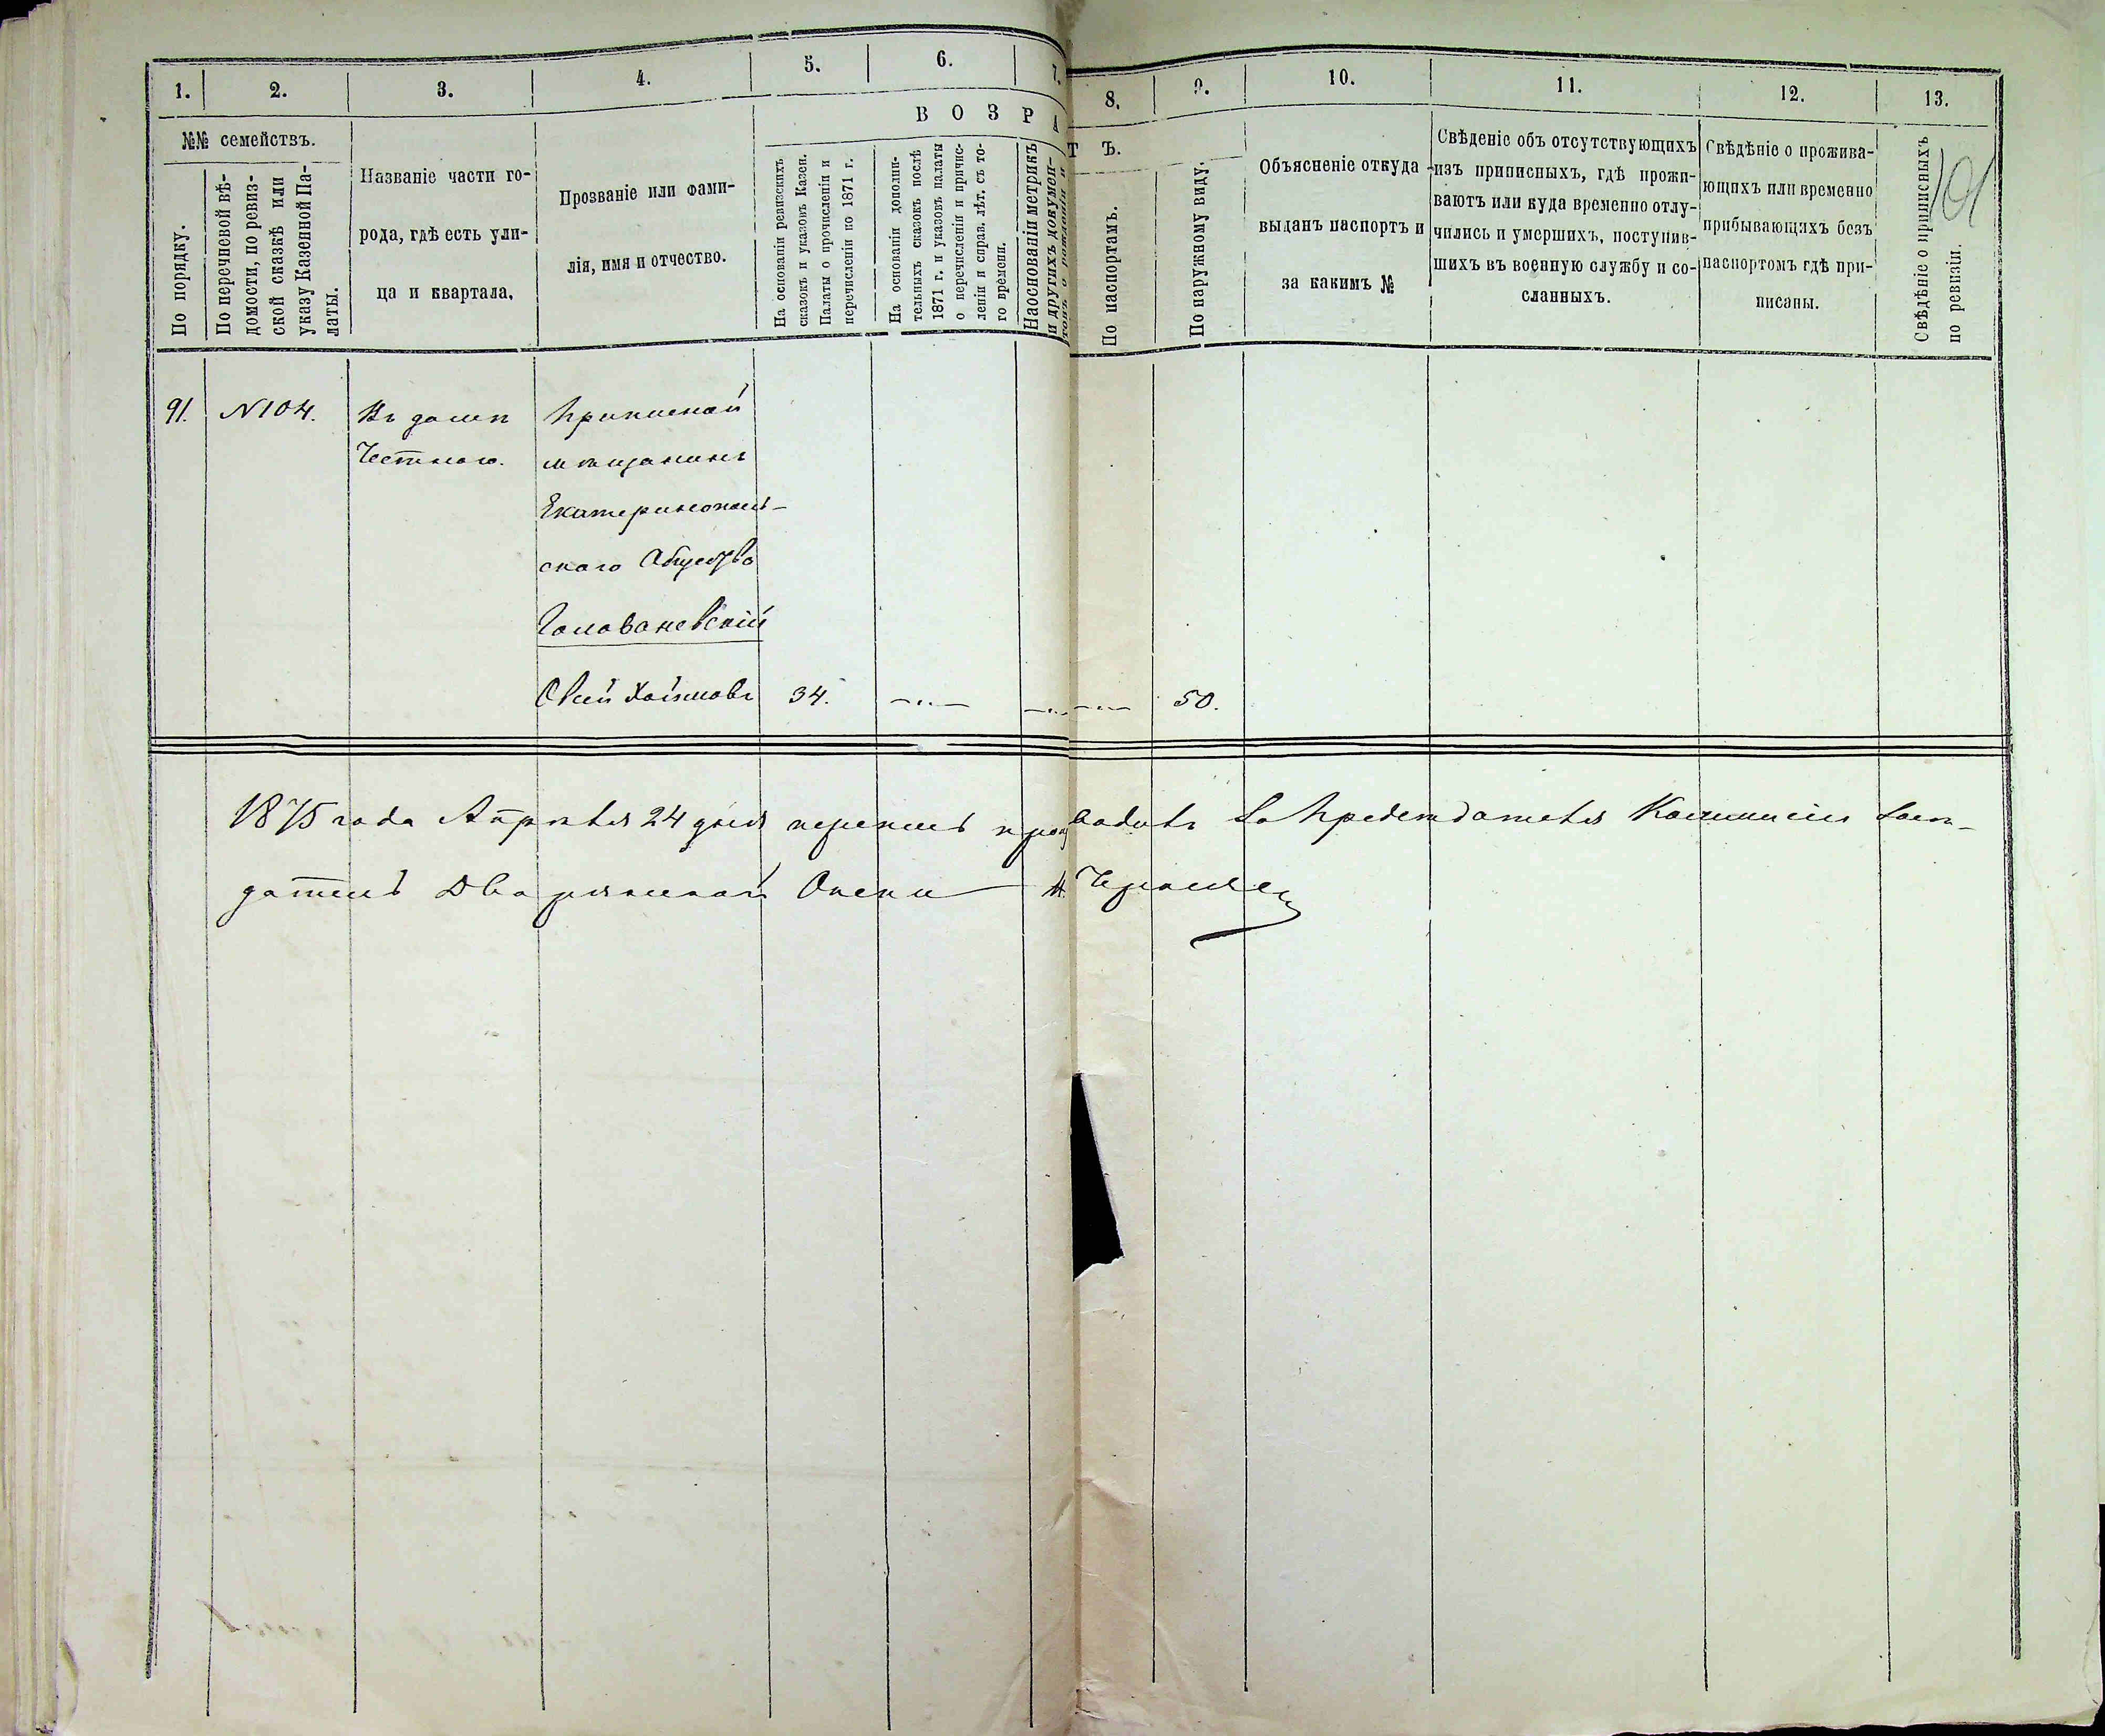 1.
2.
3.
4.
5.
6.
7.
8.
9.
10.
11.
12.
13.
ВОЗРА
ТЪ.
№№ семействъ.
По порядку.
По перечневой вѣ-
домости, по ревиз-
ской сказкѣ или
указу Казенной Па-
латы.
Названіе части го-
рода, гдѣ есть ули-
ца и квартала.
Прозваніе или фами-
лія, имя и отчество.
На основаніи ревизскихъ
сказокъ и указовъ Казен.
Палаты о прочисленіи и
перечисленіи по 1871 г.
На основаніи дополни-
тельныхъ сказокъ послѣ
1871 г. и указовъ палаты
о перечисленіи и причис-
леніи и справ. лѣт. съ то-
го времени.
На основаніи метрикъ
и другихъ докумен-
товъ о рожденіи и
По паспортамъ.
По наружному виду.
Объясненіе откуда
выданъ паспортъ и
за какимъ №
Свѣденіе объ отсутствующихъ
изъ приписныхъ, гдѣ прожи-
ваютъ или куда временно отлу-
чились и умершихъ, поступив-
шихъ въ военную службу и со-
сланныхъ.
Свѣдѣніе о прожива-
ющихъ или временно
прибывающихъ безъ
паспортомъ гдѣ при-
писаны.
Свѣдѣніе о приписныхъ
по ревизіи.
101
91. №104. Въ домѣ Приписной
Честного. мѣщанинъ
Екатеринополь-
скаго Общества
Голованевскій
Овсій Хаимовъ 34. —„— —„— —„— 50.
1875 года Апрѣля 24 дня перепись производилъ За Предсѣдателя Коммисіи Засѣ-
датель Дворянской Опеки